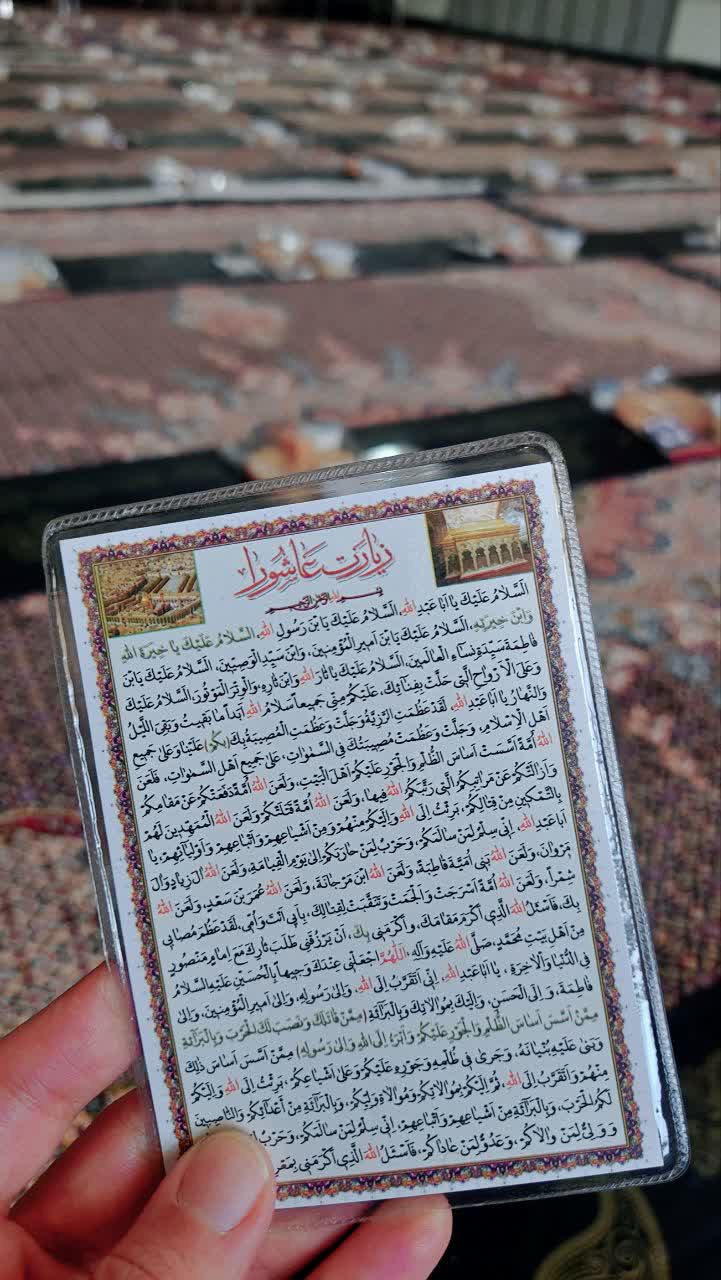 زیارت عاشورا
بِسْمِ اللهِ الرَّحْمٰنِ الرَّحِیمِ
اَلسَّلامُ عَلَیْكَ یا اَبا عَبْدِ اللهِ، اَلسَّلامُ عَلَیْكَ یَا بْنَ رَسُولِ اللهِ، اَلسَّلامُ عَلَیْكَ یا خِیَرَةَ اللهِ
وَابْنَ خِیَرَتِهِ، اَلسَّلامُ عَلَیْكَ یَا بْنَ اَمیرِ الْمُؤْمِنینَ، وَابْنَ سَیِّدِ الْوَصِیّینَ، اَلسَّلامُ عَلَیْكَ یَابْنَ
فاطِمَةَ سَیِّدَةِ نِساءِ الْعالَمینَ، اَلسَّلامُ عَلَیْكَ یا ثارَ اللهِ وَابْنَ ثارِهِ، وَالْوِتْرَ الْمَوْتُورَ، اَلسَّلامُ عَلَیْكَ
وَعَلَی الْاَرْواحِ الَّتی حَلَّتْ بِفِنائِكَ، عَلَیْكُمْ مِنّی جَمیعاً سَلامُ اللهِ اَبَداً ما بَقیتُ وَبَقِیَ اللَّیْلُ
وَالنَّهارُ، یا اَبا عَبْدِ اللهِ، لَقَدْ عَظُمَتِ الرَّزِیَّةُ وَجَلَّتْ وَعَظُمَتِ الْمُصیبَةُ بِكَ (بِكُمْ) عَلَیْنا وَعَلی جَمیعِ
اَهْلِ الْاِسْلامِ، وَجَلَّتْ وَعَظُمَتْ مُصیبَتُكَ فِی السَّمٰواتِ، عَلی جَمیعِ اَهْلِ السَّمٰواتِ، فَلَعَنَ
اللهُ اُمَّةً اَسَّسَتْ اَساسَ الظُّلْمِ وَالْجَوْرِ عَلَیْكُمْ اَهْلَ الْبَیْتِ، وَلَعَنَ اللهُ اُمَّةً دَفَعَتْكُمْ عَنْ مَقامِكُمْ
وَاَزالَتْكُمْ عَنْ مَراتِبِكُمُ الَّتی رَتَّبَكُمُ اللهُ فیها، وَلَعَنَ اللهُ اُمَّةً قَتَلَتْكُمْ وَلَعَنَ اللهُ الْمُمَهِّدینَ لَهُمْ
بِالتَّمْكینِ مِنْ قِتالِكُمْ، بَرِئْتُ اِلَی اللهِ وَاِلَیْكُمْ مِنْهُمْ وَمِنْ اَشْیاعِهِمْ وَاَتْباعِهِمْ وَاَوْلِیائِهِمْ، یا
اَبا عَبْدِ اللهِ، اِنّی سِلْمٌ لِمَنْ سالَمَكُمْ، وَحَرْبٌ لِمَنْ حارَبَكُمْ اِلی یَوْمِ الْقِیامَةِ، وَلَعَنَ اللهُ الَ زِیادٍ وَالَ
مَرْوانَ، وَلَعَنَ اللهُ بَنی اُمَیَّةَ قاطِبَةً، وَلَعَنَ اللهُ ابْنَ مَرْجانَةَ، وَلَعَنَ اللهُ عُمَرَ بْنَ سَعْدٍ، وَلَعَنَ اللهُ
شِمْراً، وَلَعَنَ اللهُ اُمَّةً اَسْرَجَتْ وَاَلْجَمَتْ وَتَنَقَّبَتْ لِقِتالِكَ، بِاَبی اَنْتَ وَاُمّی، لَقَدْ عَظُمَ مُصابی
بِكَ، فَاَسْئَلُ اللهَ الَّذی اَكْرَمَ مَقامَكَ، وَاَكْرَمَنی بِكَ، اَنْ یَرْزُقَنی طَلَبَ ثارِكَ مَعَ اِمامٍ مَنْصُورٍ
مِنْ اَهْلِ بَیْتِ مُحَمَّدٍ، صَلَّی اللهُ عَلَیْهِ وَآلِهِ، اَللّٰهُمَّ اجْعَلْنی عِنْدَكَ وَجیهاً بِالْحُسَیْنِ عَلَیْهِ السَّلامُ
فِی الدُّنْیا وَالْاخِرَةِ، یا اَبا عَبْدِ اللهِ، اِنّی اَتَقَرَّبُ اِلَی اللهِ، وَاِلی رَسُولِهِ، وَاِلی اَمیرِ الْمُؤْمِنینَ، وَاِلی
فاطِمَةَ، وَ اِلَی الْحَسَنِ، وَاِلَیْكَ بِمُوالاتِكَ وَبِالْبَرائَةِ (مِمَّنْ قاتَلَكَ وَنَصَبَ لَكَ الْحَرْبَ، وَبِالْبَرائَةِ
مِمَّنْ اَسَّسَ اَساسَ الظُّلْمِ وَالْجَوْرِ عَلَیْكُمْ وَاَبْرَءُ اِلَی اللهِ وَاِلی رَسُولِهِ) مِمَّنْ اَسَّسَ اَساسَ ذلِكَ
وَبَنی عَلَیْهِ بُنْیانَهُ، وَجَری فی ظُلْمِهِ وَجَوْرِهِ عَلَیْكُمْ وَعَلی اَشْیاعِكُمْ، بَرِئْتُ اِلَی اللهِ وَاِلَیْكُمْ
مِنْهُمْ وَاَتَقَرَّبُ اِلَی اللهِ، ثُمَّ اِلَیْكُمْ بِمُوالاتِكُمْ وَمُوالاةِ وَلِیِّكُمْ، وَبِالْبَرائَةِ مِنْ اَعْدائِكُمْ، وَالنّاصِبینَ
لَكُمُ الْحَرْبَ، وَبِالْبَرائَةِ مِنْ اَشْیاعِهِمْ وَاَتْباعِهِمْ، اِنّی سِلْمٌ لِمَنْ سالَمَكُمْ، وَحَرْبٌ
وَ وَلِیٌّ لِمَنْ والاكُمْ، وَعَدُوٌّ لِمَنْ عاداكُمْ، فَاَسْئَلُ اللهَ الَّذی اَكْرَمَنی